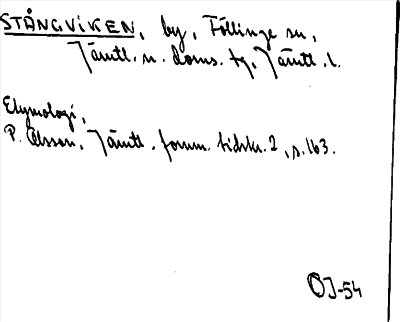 STÅNGVIKEN, by, Föllinge sn,
Jämtl. n. doms. tg, Jämtl. l.
Etymologi,
P. Olsson, Jämtl. fornm. tidskr. 2, s. 163.
OJ-54